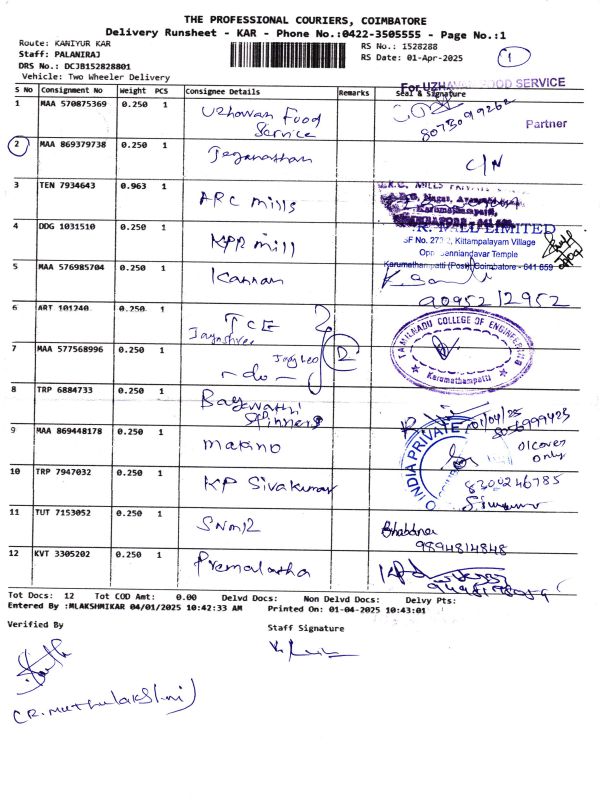 THE PROFESSIONAL COURIERS, COIMBATORE
Delivery Runsheet - KAR - Phone No.:0422-3505555 - Page No.:1
Route: KANIYUR KAR
RS No.: 1528288
Staff: PALANIRAJ
RS Date: 01-Apr-2025
1
DRS No.: DCJB152828801
Vehicle: Two Wheeler Delivery
For UZHAVAN FOOD SERVICE
S No Consignment No Weight PCS Consignee Details Remarks Seal & Signature
1 MAA 570875369 0.250 1 Uzhavan Food Service
8073099262
Partner
2 MAA 869379738 0.250 1 Jeganathan C/N
3 TEN 7934643 0.963 1 ARC Mills
Karumathampatti,
4 DDG 1031510 0.250 1 KPR mill
MILL LIMITED
SF No. 273/2, Kittampalayam Village
Opp. Senniandavar Temple
Karumathampatti (Post) Coimbatore - 641 659
5 MAA 576985704 0.250 1 Kannan
90952 12952
6 ART 101240 0.250 1 TCE
Jayashree
TAMILNADU COLLEGE OF ENGINEERING
Karumathampatti
7 MAA 577568996 0.250 1 - do - 2
8 TRP 6884733 0.250 1 Bagavathi Spinners
01/04/25
8056999423
9 MAA 869448178 0.250 1 makino
INDIA PRIVATE
01 cover only
10 TRP 7947032 0.250 1 KP Sivakumar
8300246785
11 TUT 7153052 0.250 1 SNM12
9894814848
12 KVT 3305202 0.250 1 Premalatha
Tot Docs: 12 Tot COD Amt: 0.00 Delvd Docs: Non Delvd Docs: Delvy Pts:
Entered By :MLAKSHMIKAR 04/01/2025 10:42:33 AM Printed On: 01-04-2025 10:43:01
Verified By
Staff Signature
(R. Muthulakshmi)